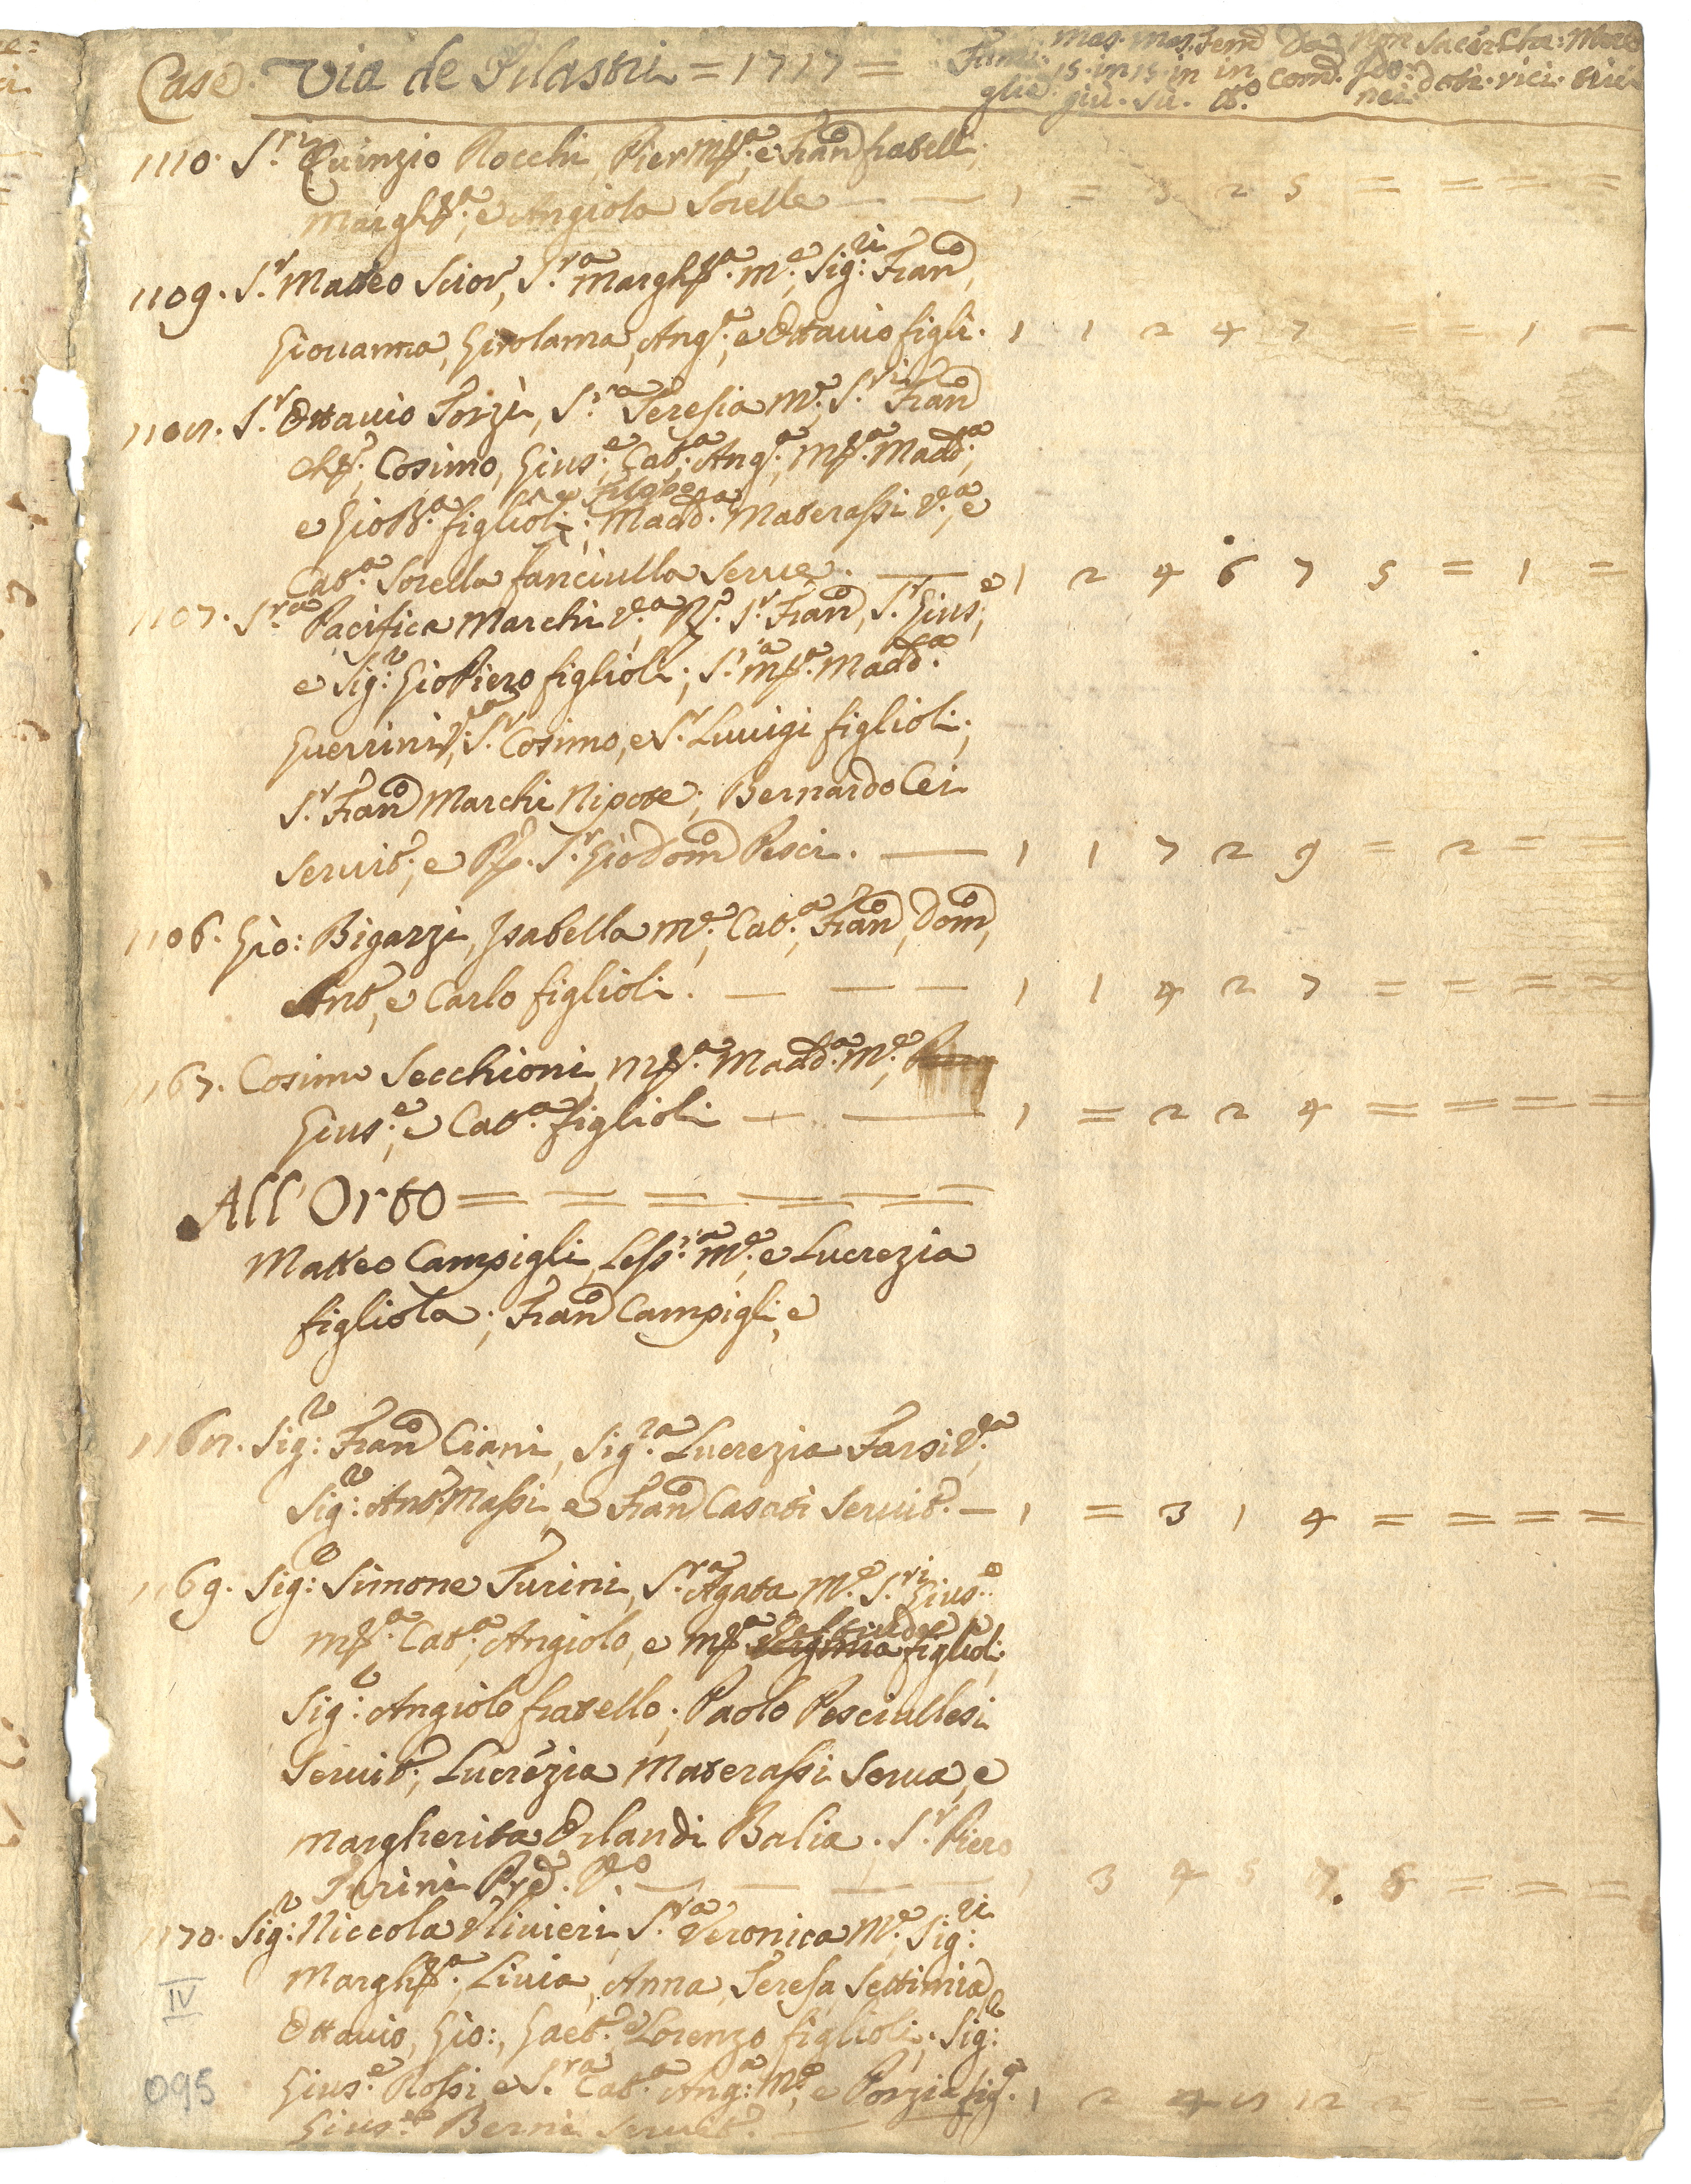 Case. Via de Pilastri = 1717 = Fami: mas. mas. fem̄ Da non Sacer Cha: Mon
glie. 15. in 15. in in Com̄. Ido: doti. rici.
giù. sù. tt.o nei.
1110. S.ri Quinzio Rocchi, Pier M.a, e Fran.co fratelli;
Margh.a, e Angiola Sorelle — — 1 = 3 2 5 = = = =
1109. S.r Matteo Scior, S.ra Margh.a M.e, Sig.ri Fran.co,
Giovanna, Girolama, Ang.a, e Ottavio figli. 1 1 2 4 7 = = 1 =
1108. S.r Ottavio Torzi, S.ra Teresia M.e, S.ri Fran.co
Cosimo, Gius.e, Cat.a, Ang.a, M.a Madd.a,
e GioB.a figlioli; Madd.a Materassi V.a, e
Cat.a Sorella fanciulla Serve. — 1 2 4 6 7 5 = 1 =
1107. S.ra Pacifica Marchi V.a, S.r Fran.co, S.r Gius.e,
e Sig.r Gio Piero figlioli; S.ra M.a Madd.a
Guerrini V.a, S.r Cosimo, e S.r Luuigi figlioli;
S.r Fran.co Marchi Nipote; Bernardo Cei
Servit.e, e S.r Gio Dom.co Pesci. — 1 1 7 2 9 = 2 = =
1106. Gio: Bigazzi, Isabella M.e, Cat.a, Fran.co, Dom.co,
Ant.o, e Carlo figlioli. — — — 1 1 4 2 7 = = = =
1167. Cosimo Secchioni, M.a Madd.a M.e,
Gius.e, e Cat.a figlioli — — 1 = 2 2 4 = = = =
All' Orto = = = = = =
Matteo Campigli, Less.ra M.e, e Lucrezia
figliola; Fran.co Campigli, e
1168. Sig.r Fran.co Ciani, Sig.ra Lucrezia Farsi V.a,
Sig.r Ant.o Massi, e Fran.co Casati Servit.e — 1 = 3 1 4 = = = =
1169. Sig.r Simone Turini, S.ra Agata M.e, S.ri Gius.e
M.a Cat.a, Angiolo, e M.a figlioli;
Sig.r Angiolo fratello; Paolo Pesciullesi
Servit.e, Lucrezia Materassi Serva, e
Margherita Orlandi Balia. S.r Piero
Turini — — — — 1 3 4 5 7. 8 = = =
1170. Sig.r Niccola Ulivieri, S.ra Veronica M.e, Sig.ri
Margh.a, Livia, Anna, Teresa, Settimia,
Ottavio, Gio:, Gaet.o, e Lorenzo figlioli; Sig.r
Gius.e Rossi, e S.ra Cat.a Ang.a M.e, e Porzia fig.a 1 2 4 8 12 2 = = =
Gius.e Berni Servit.e —
IV
095